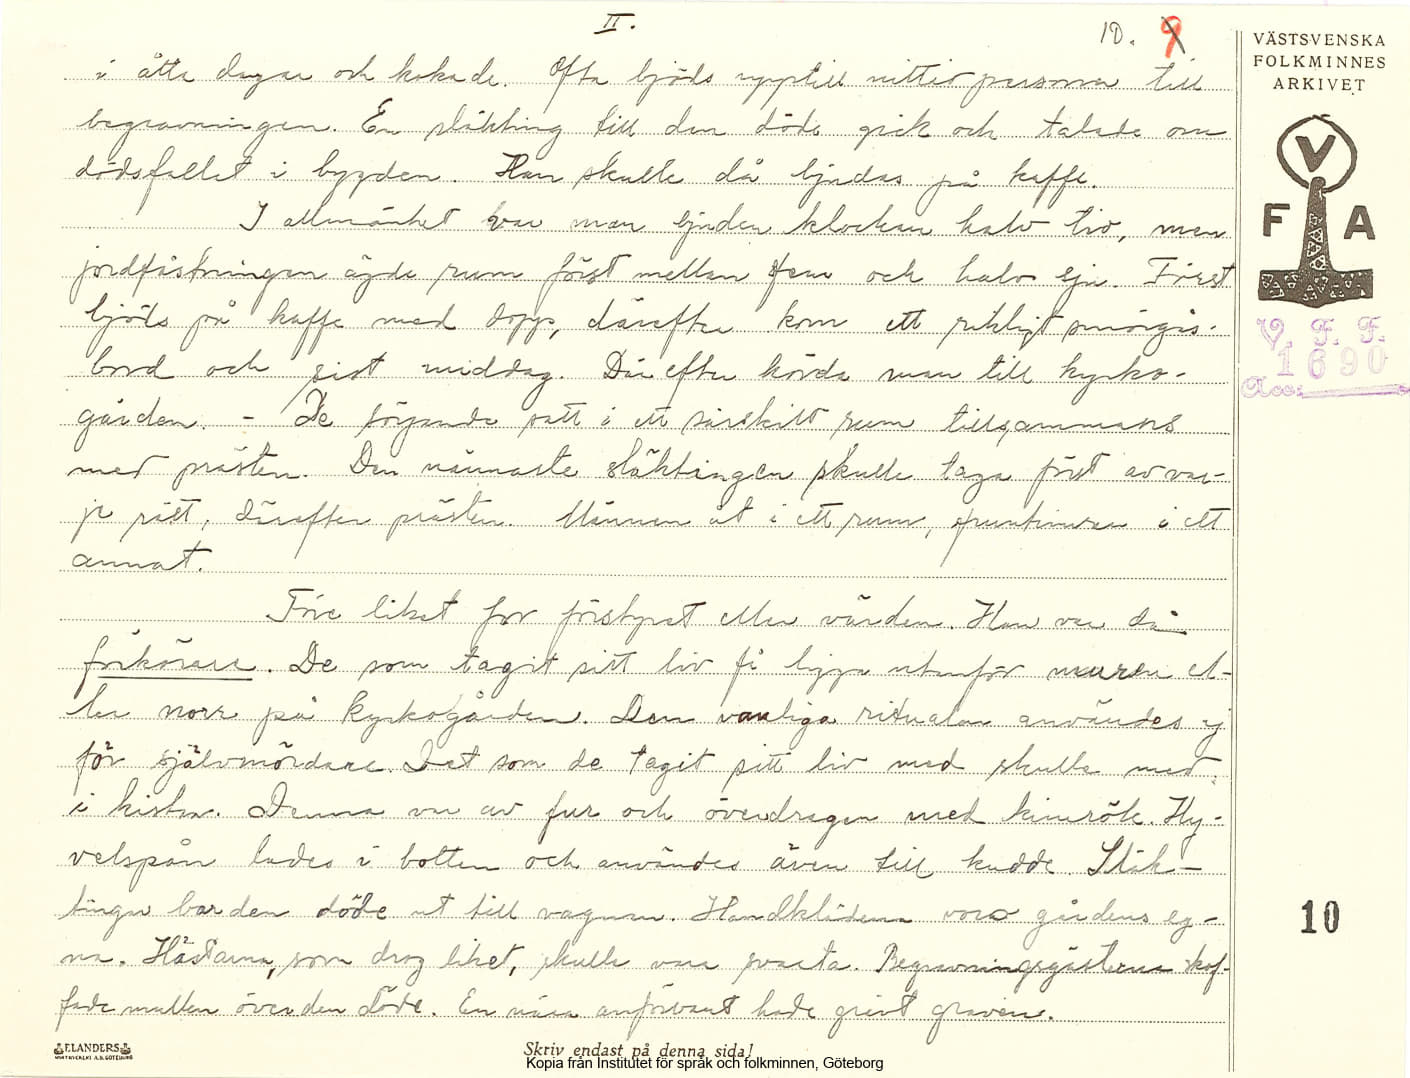 II.
10. 9
VÄSTSVENSKA
FOLKMINNES
ARKIVET
V
F A
V. F. F.
1690
Acc:
i åtta dagar och kokade. Ofta bjöds upptill nittio personer till
begravningen. En släkting till den döde gick och talade om
dödsfallet i bygden. Han skulle då bjudas på kaffe.
I allmänhet var man bjuden klockan halv tio, men
jordfästningen ägde rum först mellan fem och halv sju. Först
bjöds på kaffe med dopp, därefter kom ett rikligt smörgås-
bord och sist middag. Därefter körde man till kyrko-
gården. - De sörjande satt i ett särskilt rum tillsammans
med prästen. Den närmaste släktingen skulle taga först av var-
je rätt, därefter prästen. Männen åt i ett rum, fruntimren i ett
annat.
Före liket for förstyret eller värden. Han var då
förkörare. De som tagit sitt liv få ligga utanför muren el-
ler norr på kyrkogården. Den vanliga ritualen användes ej
för självmördare. Det som de tagit sitt liv med skulle med
i kistan. Denna var av fur och överdragen med kimrök. Hy-
velspån lades i botten och användes även till kudde. Släk-
tingar bar den döde ut till vagnen. Handklädena voro gårdens eg-
na. Hästarna, som drog liket, skulle vara svarta. Begravningsgästerna skof-
fade mullen över den döde. En nära anförvant hade grävt graven.
10
ELANDERS
Skriv endast på denna sida!
Kopia från Institutet för språk och folkminnen, Göteborg